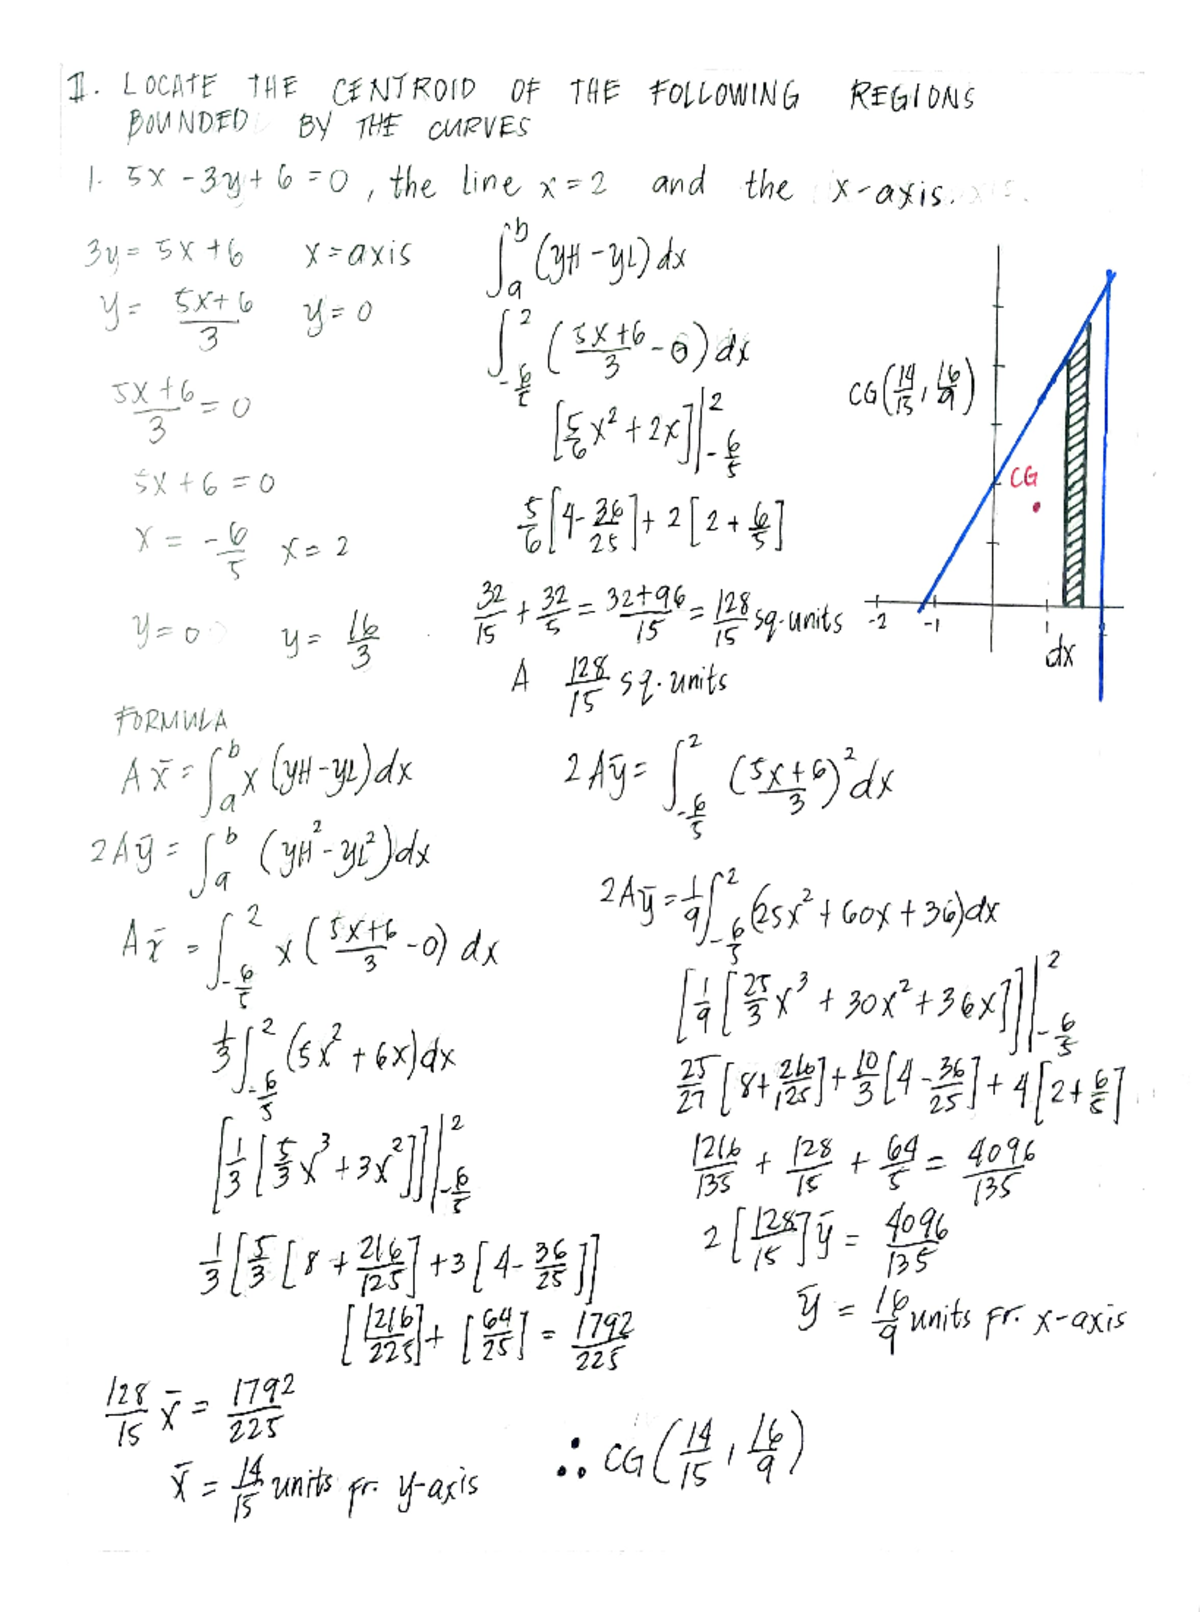 II. LOCATE THE CENTROID OF THE FOLLOWING REGIONS
BOUNDED BY THE CURVES
1. 5x - 3y + 6 = 0, the line x = 2 and the x-axis.
3y = 5x + 6 x = axis
y = (5x+6)/3 y = 0
(5x+6)/3 = 0
5x + 6 = 0
x = -6/5 x = 2
y = 0 y = 16/3
∫_a^b (yH - yL) dx
∫_{-6/5}^2 ((5x+6)/3 - 0) dx
[5/6 x² + 2x]|_{-6/5}^2
5/6 [4 - 36/25] + 2 [2 + 6/5]
32/15 + 32/5 = (32+96)/15 = 128/15 sq. units
A 128/15 sq. units
CG (14/15, 16/9)
CG
-2 -1
dx
FORMULA
Ax̄ = ∫_a^b x (yH - yL) dx
2Aȳ = ∫_a^b (yH² - yL²) dx
Ax̄ = ∫_{-6/5}^2 x ((5x+6)/3 - 0) dx
1/3 ∫_{-6/5}^2 (5x² + 6x) dx
[1/3 [5/3 x³ + 3x²]]|_{-6/5}^2
1/3 [5/3 [8 + 216/125] + 3 [4 - 36/25]]
[1216/225] + [64/25] = 1792/225
128/15 x̄ = 1792/225
x̄ = 14/15 units fr. y-axis
2Aȳ = ∫_{-6/5}^2 ((5x+6)/3)² dx
2Aȳ = 1/9 ∫_{-6/5}^2 (25x² + 60x + 36) dx
[1/9 [25/3 x³ + 30x² + 36x]]|_{-6/5}^2
25/27 [8 + 216/125] + 10/3 [4 - 36/25] + 4 [2 + 6/5]
1216/135 + 128/15 + 64/5 = 4096/135
2 [128/15] ȳ = 4096/135
ȳ = 16/9 units fr. x-axis
∴ CG (14/15, 16/9)